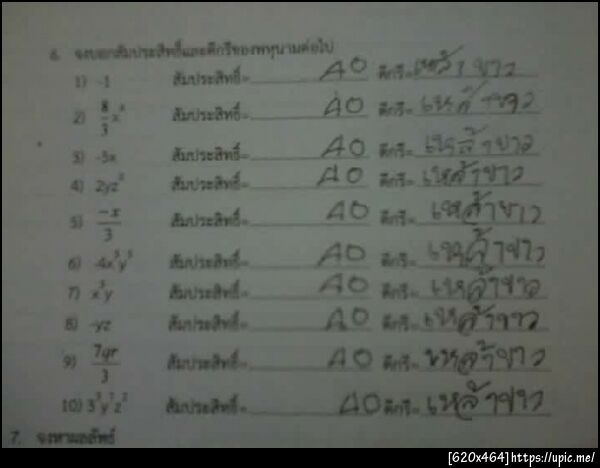 6. จงบอกสัมประสิทธิ์และดีกรีของพหุนามต่อไป
1) -1 สัมประสิทธิ์= 40 ดีกรี= เหล้าขาว
2) 8/3 x⁴ สัมประสิทธิ์= 40 ดีกรี= เหล้าขาว
3) -5x สัมประสิทธิ์= 40 ดีกรี= เหล้าขาว
4) 2yz² สัมประสิทธิ์= 40 ดีกรี= เหล้าขาว
5) -x/3 สัมประสิทธิ์= 40 ดีกรี= เหล้าขาว
6) -4x³y⁵ สัมประสิทธิ์= 40 ดีกรี= เหล้าขาว
7) x³y สัมประสิทธิ์= 40 ดีกรี= เหล้าขาว
8) -yz สัมประสิทธิ์= 40 ดีกรี= เหล้าขาว
9) 7qr/3 สัมประสิทธิ์= 40 ดีกรี= เหล้าขาว
10) สัมประสิทธิ์= 40 ดีกรี= เหล้าขาว
7. จงหาผลลัพธ์
[620x464]https://upic.me/